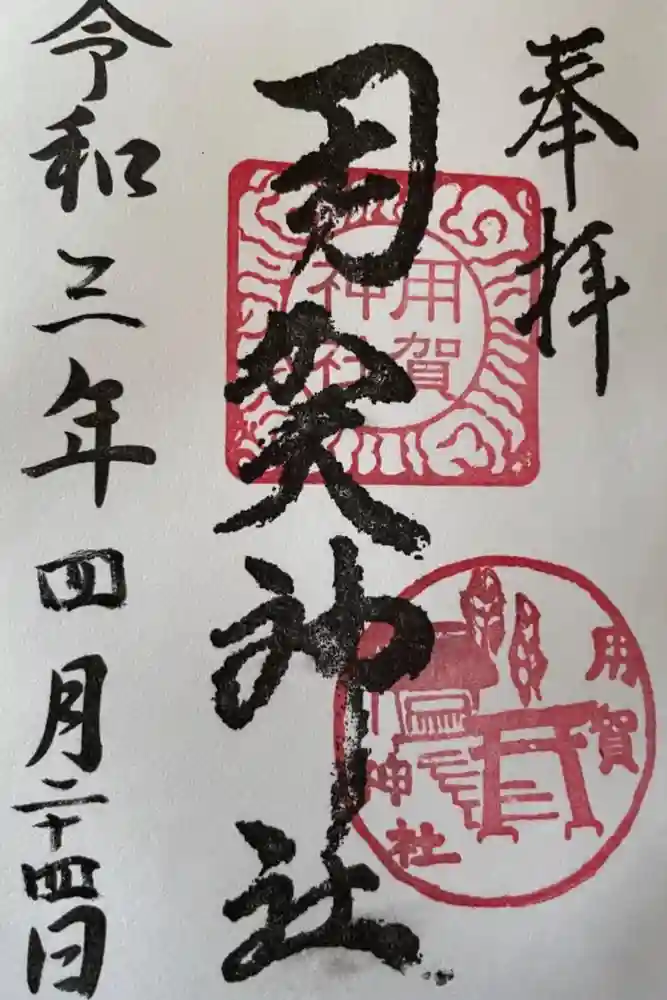 奉拝
用賀神社
用賀
神社
用賀
神社
令和三年四月二十四日